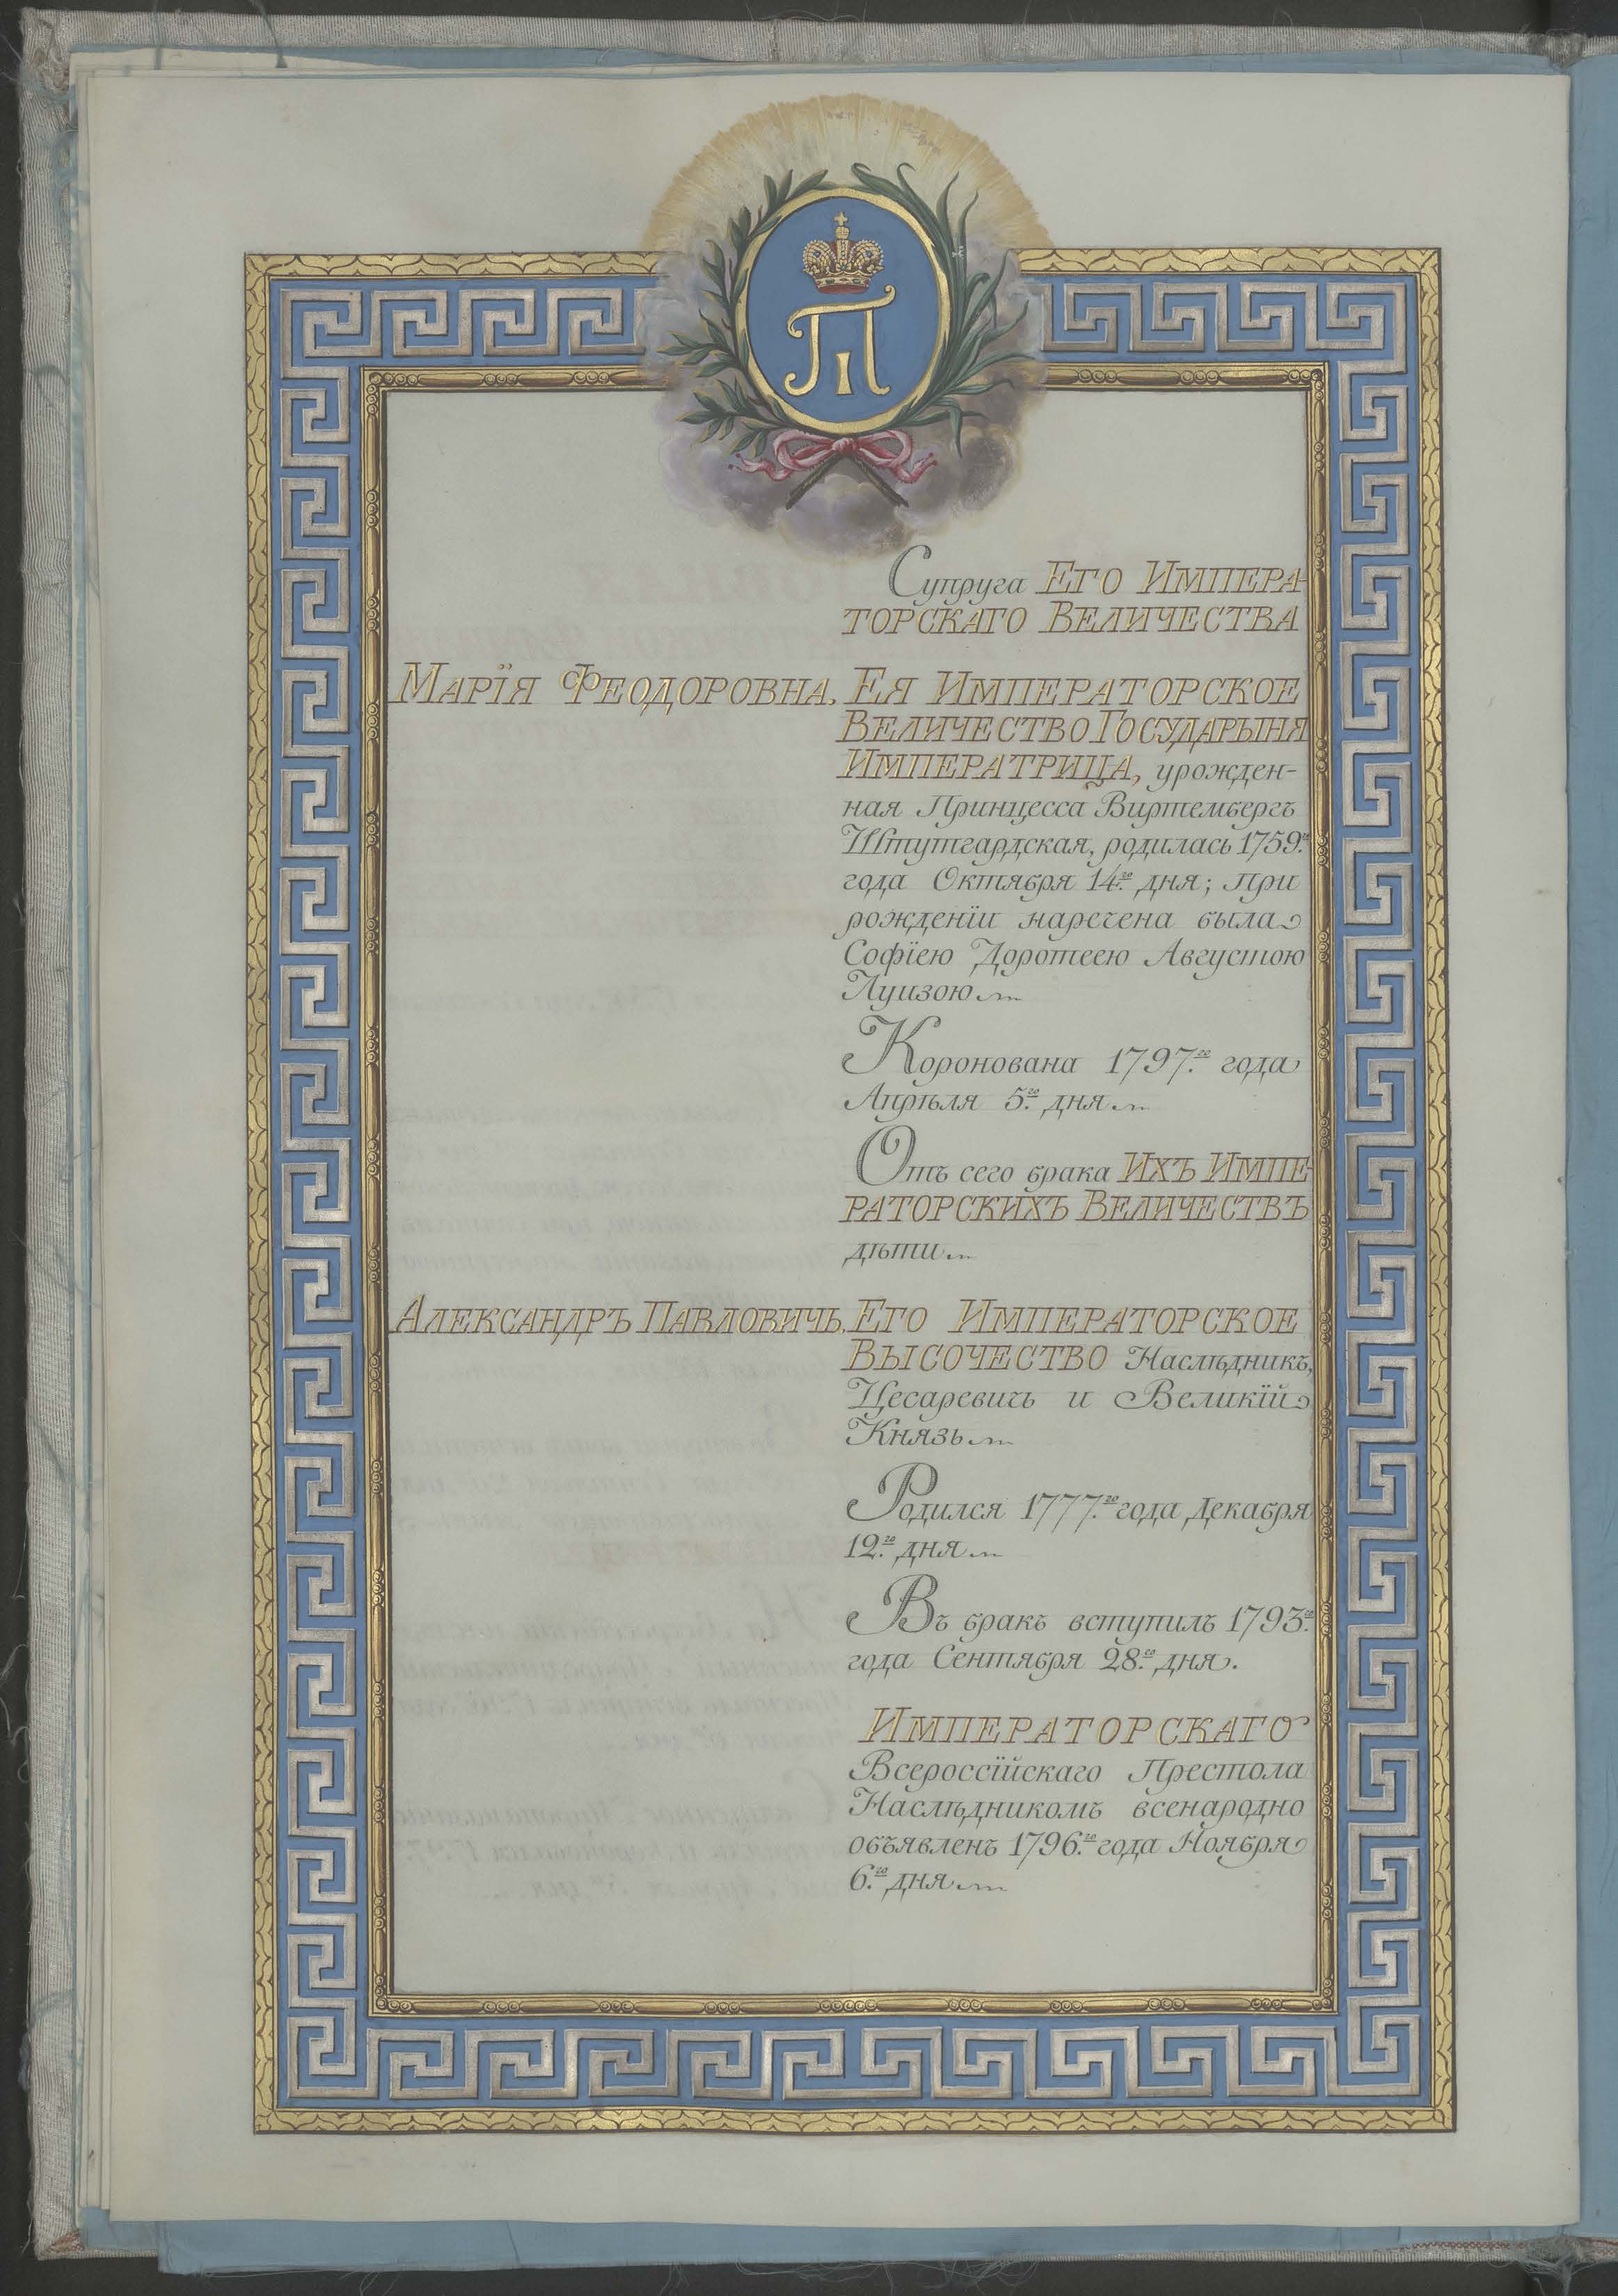 П I
Супруга ЕГО ИМПЕРА-
ТОРСКАГО ВЕЛИЧЕСТВА
МАРÏЯ ФЕОДОРОВНА, ЕЯ ИМПЕРАТОРСКОЕ
ВЕЛИЧЕСТВО ГОСУДАРЫНЯ
ИМПЕРАТРИЦА, урожден-
ная Принцесса Виртембергъ
Штутгардская, родилась 1759.го
года Октября 14.го дня; при
рожденïи наречена была
Софïею Доротеею Августою
Луизою
Коронована 1797.го года
Апрѣля 5.го дня
Отъ сего брака ИХЪ ИМПЕ-
РАТОРСКИХЪ ВЕЛИЧЕСТВЪ
дѣти
АЛЕКСАНДРЪ ПАВЛОВИЧЬ, ЕГО ИМПЕРАТОРСКОЕ
ВЫСОЧЕСТВО Наслѣдникъ,
Цесаревичь и Великïй
Князь
Родился 1777.го года Декабря
12.го дня
Въ бракъ вступилъ 1793.го
года Сентября 28.го дня.
ИМПЕРАТОРСКАГО
Всероссïйскаго Престола
Наслѣдникомъ всенародно
объявленъ 1796.го года Ноября
6.го дня